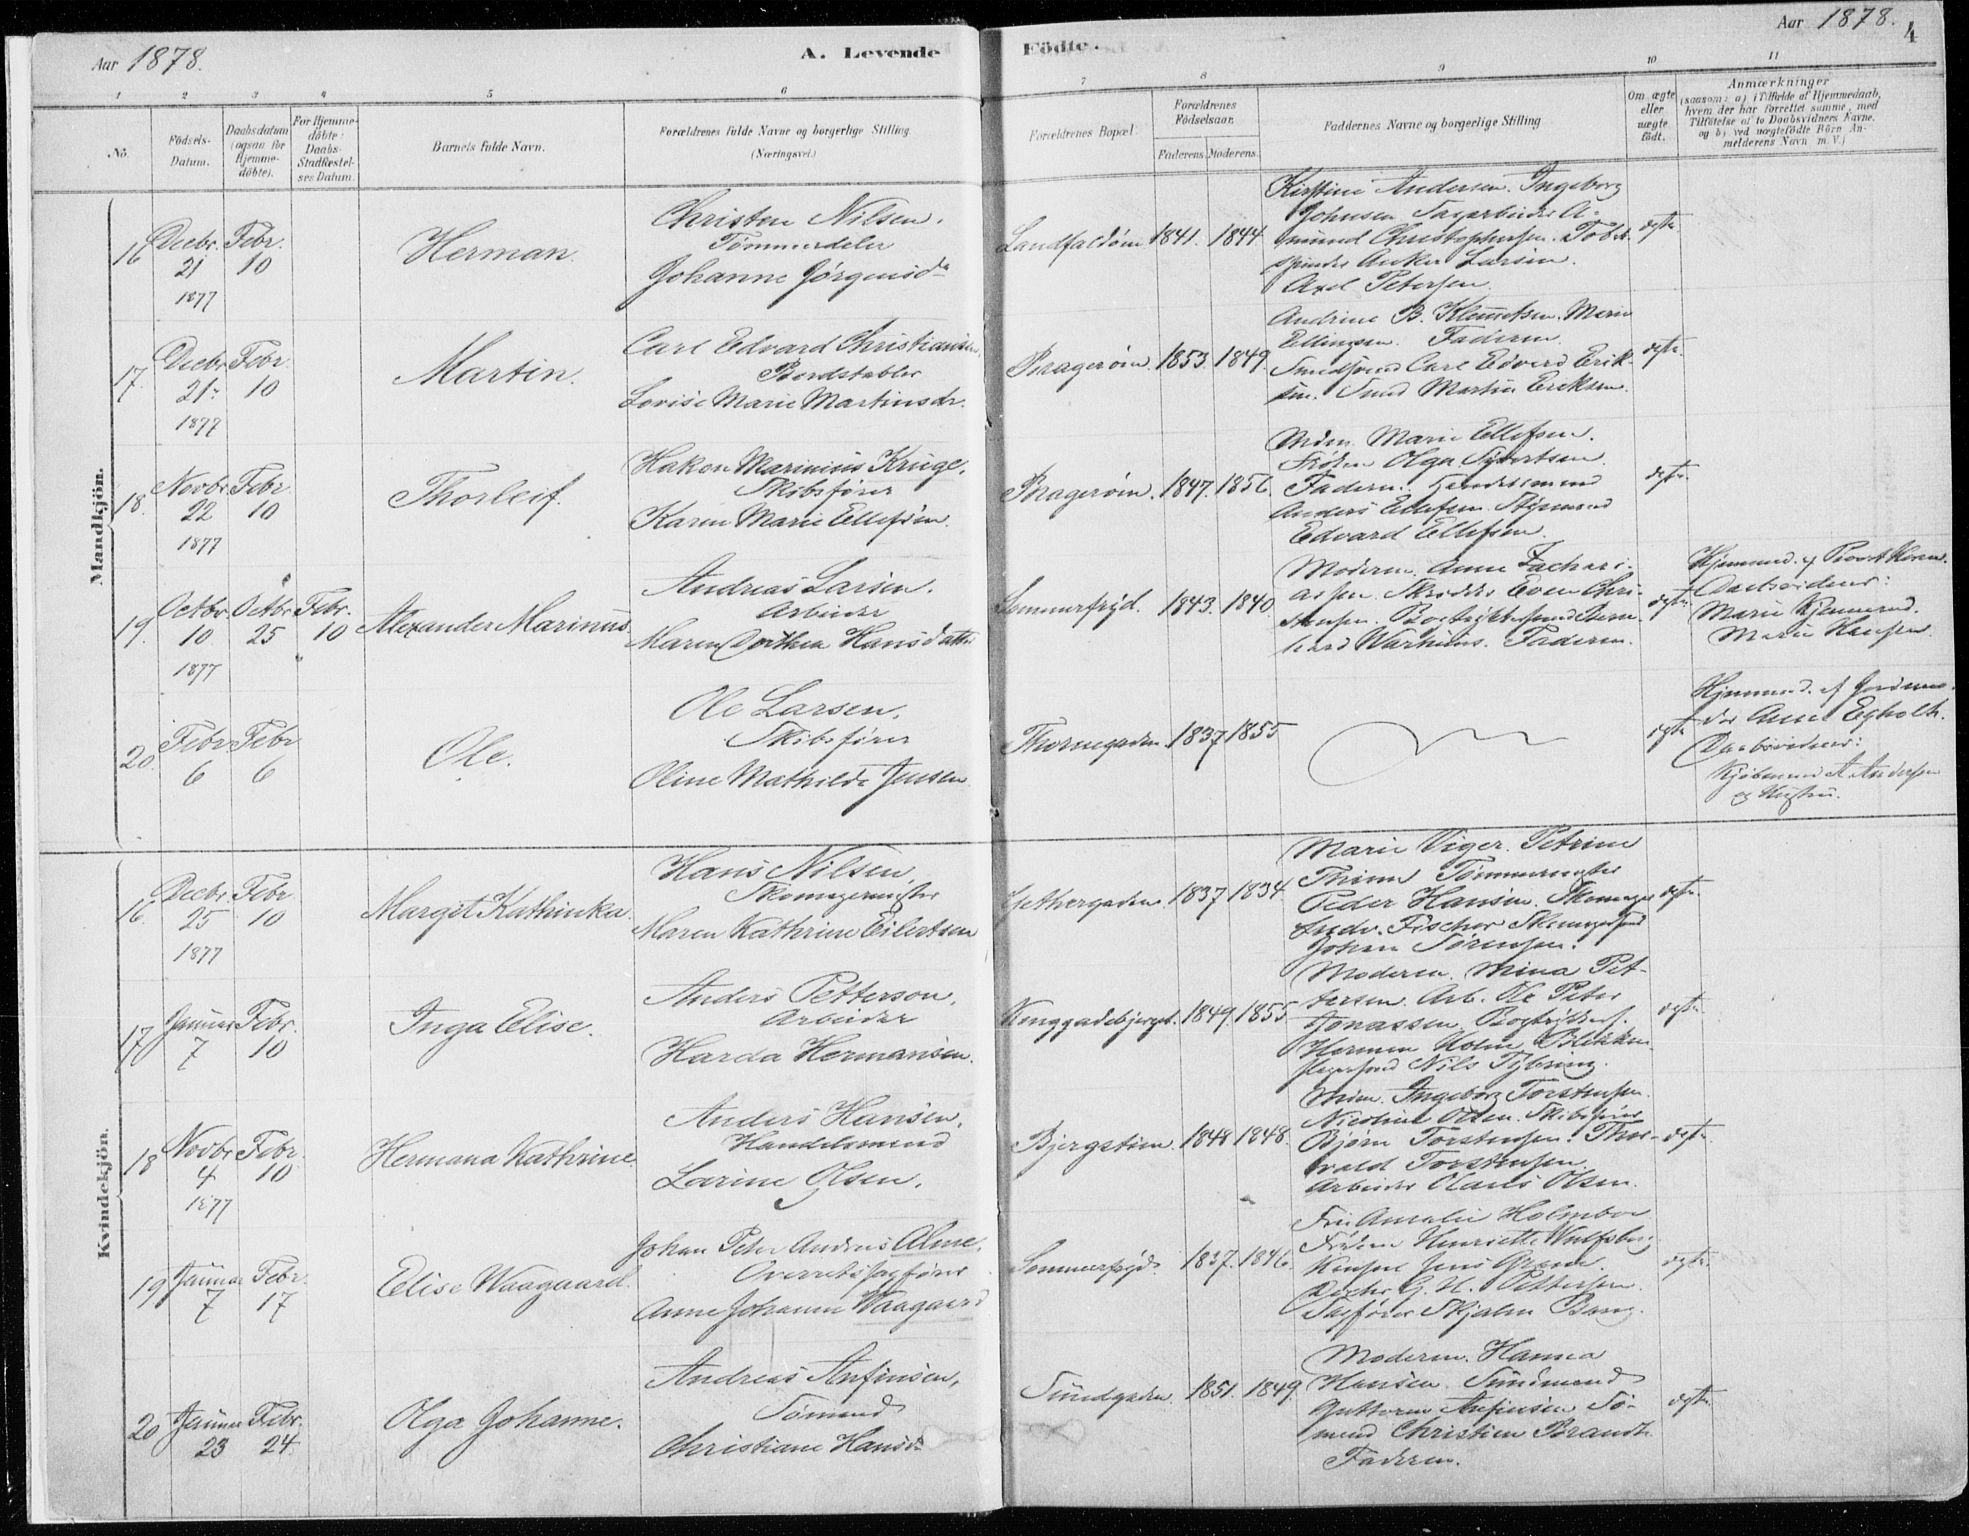 Aar 1878.
A. Levende
Födte.
Aar 1878.
4
1 2 3 4 5 6 7 8 9 10 11
No.
Födsels-
Datum.
Daabsdatum
(ogsaa for
Hjemme-
döbte).
For Hjemme-
döbte:
Daabs-
Stadfæstel-
ses Datum.
Barnets fulde Navn.
Forældrenes fulde Navne og borgerlige Stilling
(Næringsvei.)
Forældrenes Bopæl.
Forældrenes
Födselsaar.
Faderens. Moderens.
Faddernes Navne og borgerlige Stilling
Om ægte
eller
uægte
födt.
Anmærkninger
(saasom: a) i Tilfælde af Hjemmedaab,
hvem der har forrettet samme, med
Tilföielse af to Daabsvidners Navne,
og b) ved uægtefödte Börn An-
melderens Navn m.V.)
Mandkjön.
16
Decbr.
21
1877
Febr.
10
Herman.
Christen Nilsen.
Tømmerdeler
Johanne Jörgensdr
1841. 1844
Kirstine Andersen. Ingeborg
Johnsen
Christophersen.
Anker Larsen.
Axel Petersen.
ægte
17.
Decbr.
21
1877
Febr.
10
Martin.
Carl Edvard Christiansen,
Bordstabler
Lovise Marie Martinsdr.
Bragerøen. 1853. 1849.
Andrine B. Klemetsen. Marie
Ellingsen. Faderen.
Carl Edvard Erik-
sen. Smed Martin Eriksen.
ægte.
18.
Novbr.
22
1877
Febr
10
Thorleif.
Hakon Marinius Kruge,
Skibsfører
Karen Marie Ellefsen.
Bragerøen. 1847. 1856.
Marie Ellefsen.
Frøken Olga Syvertsen
Faderen. Handelsmand
Anders Ellefsen. Styrmand
Edvard Ellefsen.
ægte.
19.
Octbr.
10
1877
Octbr.
25
Febr.
10
Alexander Marinus
Andreas Larsen.
Arbeider
Maren Dorthea Hansdatter
Sommerfryd. 1843. 1840.
Moderen. Anne Zachari-
asen. Skrædder Even Chri-
stensen.
Faderen.
ægte.
Hjemmed. af
Daabsvidner:
Marie
Marie Hansen.
20.
Febr.
6
Febr
6
Ole.
Ole Larsen,
Skibsfører
Oline Mathilde Jensen
Thornegaden. 1837 1855
ægte
Hjemmed. af Jordemo-
der Anne Egholth.
Daabsvidner:
Kjøbmand A. Andersen
og Hustru.
Kvindekjön.
16.
Decbr.
25
1877
Febr
10
Margit Kathinka.
Hans Nilsen,
Skomagermester
Maren Kathrine Eilertsen
1837 1834
Marie Viger. Petrine
Tømmermester
Peder Hansen. Skomager
Fischer
Johan Sørensen.
ægte.
17
Januar
7
Febr.
10
Inga Elise.
Anders Petterson,
Arbeider
Harda Hermansen.
1849. 1855
Moderen. Mina Pet-
tersen. Arb. Ole Peter
Jonassen.
Herman Holm
Nils Tybring.
ægte.
18
Novbr.
4
1877
Febr.
10
Hermana Kathrine
Anders Hansen,
Handelsmand
Larine Olsen.
Bjergstien 1848 1848.
Ingeborg Torstensen.
Nicoline Olsen. Skibsfører
Bjørn Torstensen. Thor-
vald Torstensen,
Arbeider Olaus Olsen.
ægte.
19
Januar
7
Febr.
17
Elise Waagaard.
Johan Peter Andreas Alme,
Overretssagfører
Anne Johanne Waagaard
Sommerfryd. 1837. 1846.
Fru Amalie Holmboe
Frøken Henriette Wulfsberg
Jens
G. N. Pettersen.
Sagfører Hjalm Bang.
ægte.
20
Januar
23
Febr.
24
Olga Johanne.
Andreas Anfinsen,
Sømand
Christiane Hansdr
Sundgaden. 1851. 1849.
Moderen. Hanna
Hansen.
Guttorm Anfinsen Sø-
mand Christian Brandt.
Faderen.
ægte.